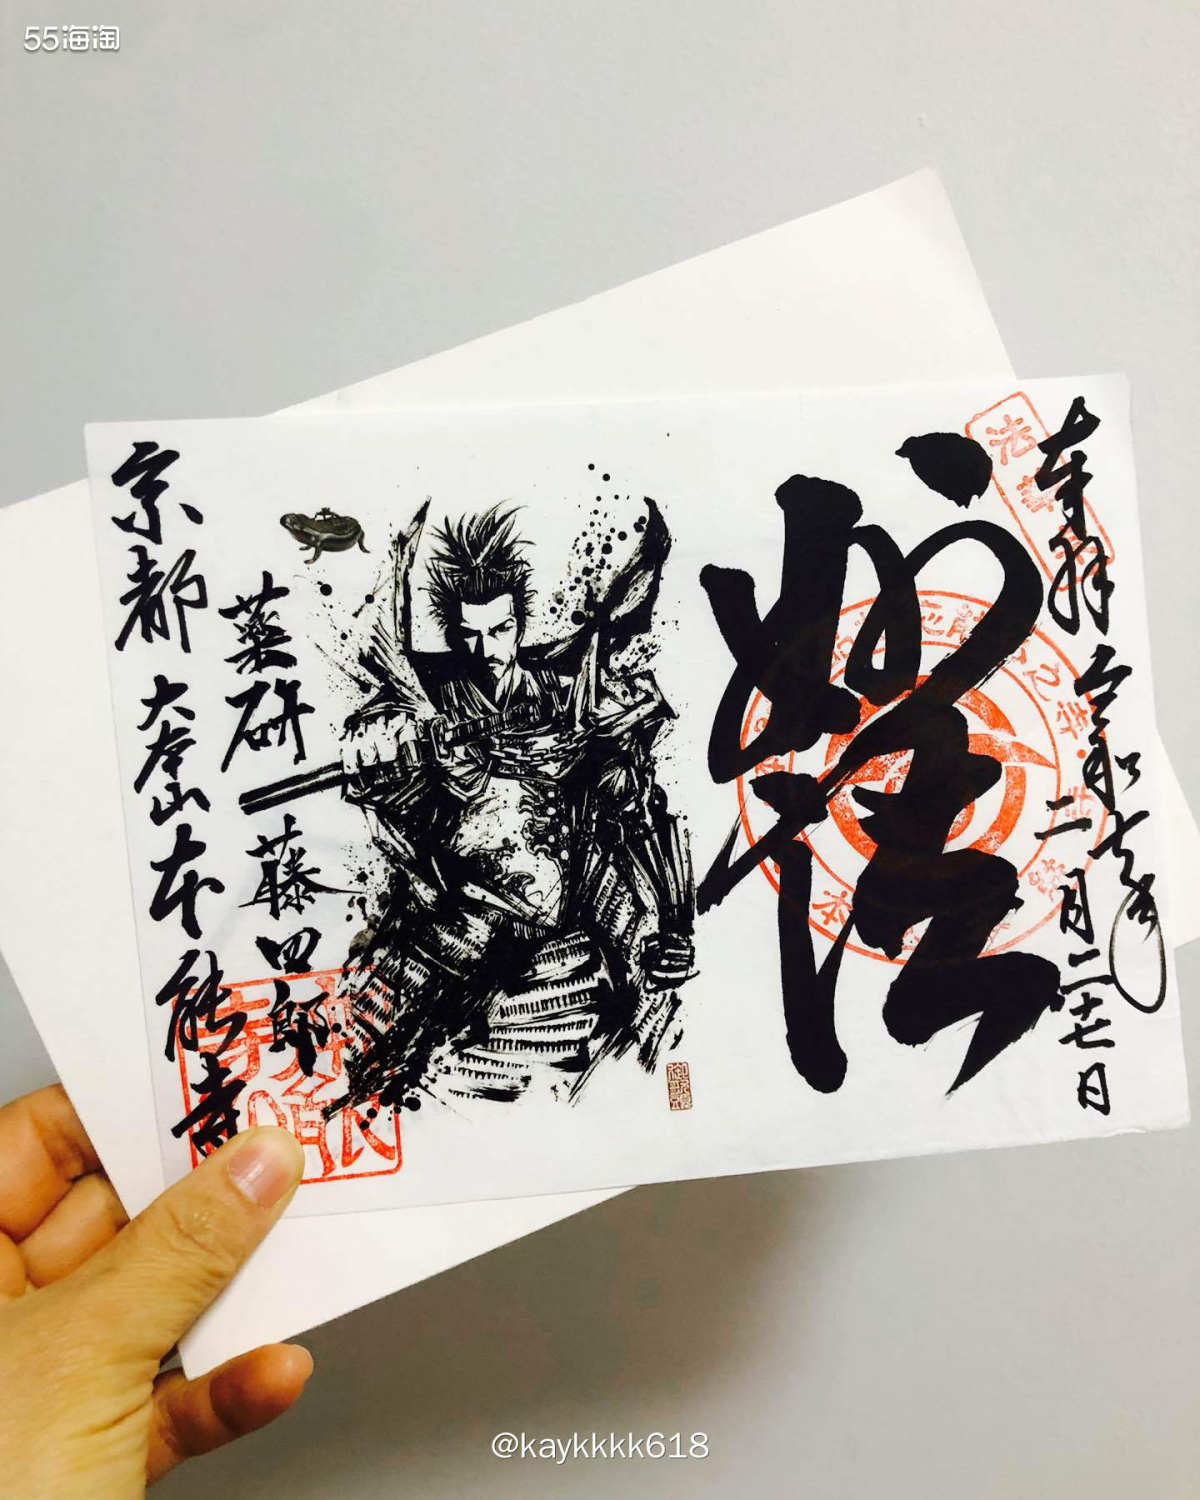 55海淘
奉拝
令和七年
二月二十七日
妙法
薬研藤四郎
京都
大本山本能寺
@kaykkkk618